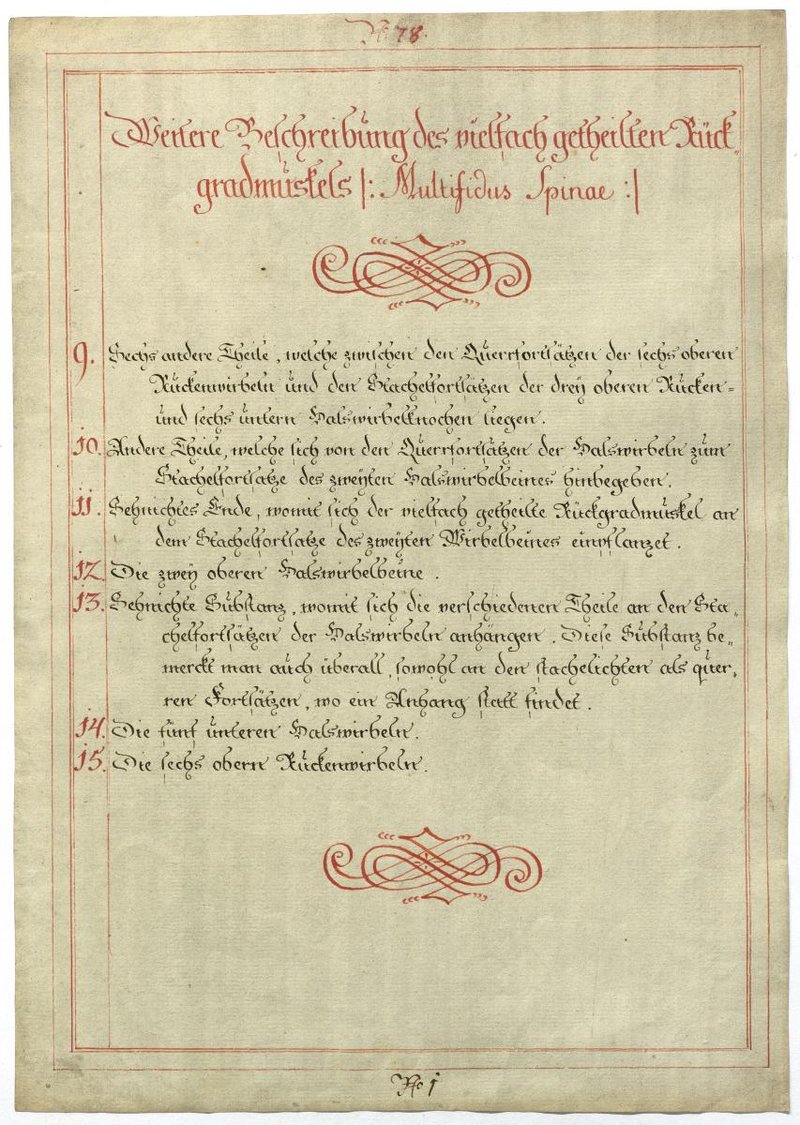 No 78.
Weitere Beschreibung des vielfach getheilten Rück„
gradmuskels |: Multifidus Spinae :|
9. Sechs andere Theile, welche zwischen den Querrfortsätzen der sechs oberen
Rückenwirbeln und den Stachelfortsätzen der drey oberen Rücken=
und sechs untern Halswirbelknochen liegen.
10. Andere Theile, welche sich von den Querrfortsätzen der Halswirbeln zum
Stachelfortsatze des zweyten Halswirbelbeines hinbegeben.
11. Sehnichtes Ende, womit sich der vielfach getheilte Rückgradmuskel an
dem Stachelfortsatze des zweyten Wirbelbeines einpflanzet.
12. Die zwey oberen Halswirbelbeine.
13. Sehnichte Substanz, womit sich die verschiedenen Theile an den Sta„
chelfortsätzen der Halswirbeln anhängen. Diese Substanz be„
merckt man auch überall, sowohl an den stachelichten als quer„
ren Fortsätzen, wo ein Anhang statt findet.
14. Die fünf unteren Halswirbeln.
15. Die sechs obern Rückenwirbeln.
No 1